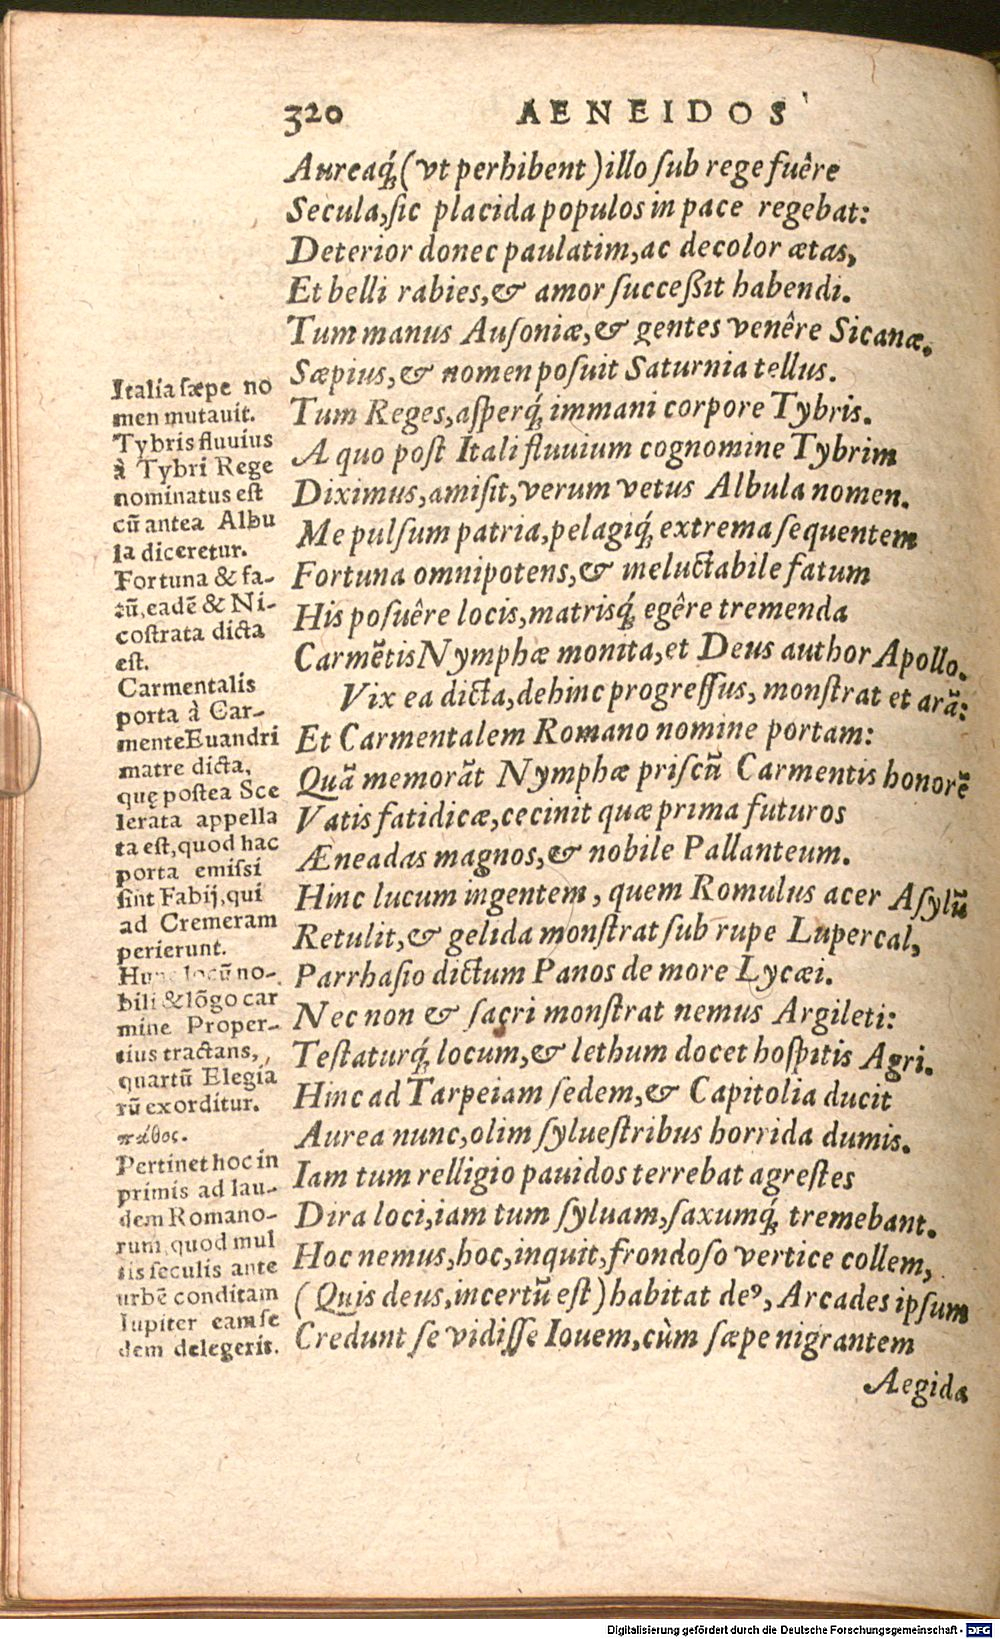 320 AENEIDOS
Aureaq́; (vt perhibent) illo ſub rege fuêre
Secula, ſic placida populos in pace regebat:
Deterior donec paulatim, ac decolor ætas,
Et belli rabies, & amor ſucceßit habendi.
Tum manus Auſoniæ, & gentes venêre Sicanæ.
Sæpius, & nomen poſuit Saturnia tellus.
Tum Reges, aſperq́; immani corpore Tybris.
A quo poſt Itali fluuium cognomine Tybrim
Diximus, amiſit, verum vetus Albula nomen.
Me pulſum patria, pelagiq́; extrema ſequentem
Fortuna omnipotens, & ineluctabile fatum
His poſuêre locis, matrisq́; egêre tremenda
Carmẽtis Nymphæ monita, et Deus author Apollo.
Vix ea dicta, dehinc progreſſus, monſtrat et arã:
Et Carmentalem Romano nomine portam:
Quã memorãt Nymphæ priſcũ Carmentis honorẽ
Vatis fatidicæ, cecinit quæ prima futuros
Æneadas magnos, & nobile Pallanteum.
Hinc lucum ingentem, quem Romulus acer Aſylũ
Retulit, & gelida monſtrat ſub rupe Lupercal,
Parrhaſio dictum Panos de more Lycæi.
Nec non & ſacri monſtrat nemus Argileti:
Teſtaturq́; locum, & lethum docet hoſpitis Agri.
Hinc ad Tarpeiam ſedem, & Capitolia ducit
Aurea nunc, olim ſylueſtribus horrida dumis.
Iam tum relligio pauidos terrebat agreſtes
Dira loci, iam tum ſyluam, ſaxumq́; tremebant.
Hoc nemus, hoc, inquit, frondoſo vertice collem,
(Quis deus, incertũ eſt) habitat deꝰ, Arcades ipſum
Credunt ſe vidiſſe Iouem, cùm ſæpe nigrantem
Aegida
Italia ſæpe no
men mutauit.
Tybris fluuius
à Tybri Rege
nominatus eſt
cũ antea Albu
la diceretur.
Fortuna & fa-
tũ, eadẽ & Ni-
coſtrata dicta
eſt.
Carmentalis
porta à Car-
mente Euandri
matre dicta,
quę poſtea Sce
lerata appella
ta eſt, quod hac
porta emiſsi
ſint Fabij, qui
ad Cremeram
perierunt.
Hunc locũ no-
bili & lõgo car
mine Proper-
tius tractans,
quartũ Elegia
rũ exorditur.
πάθος.
Pertinet hoc in
primis ad lau-
dem Romano-
rum, quod mul
tis ſeculis ante
urbẽ conditam
Iupiter eam ſe
dem delegerit.
Digitalisierung gefördert durch die Deutsche Forschungsgemeinschaft - DFG